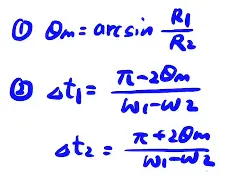 ① θm = arcsin R1/R2
② Δt1 = (π-2θm)/(ω1-ω2)
Δt2 = (π+2θm)/(ω1-ω2)